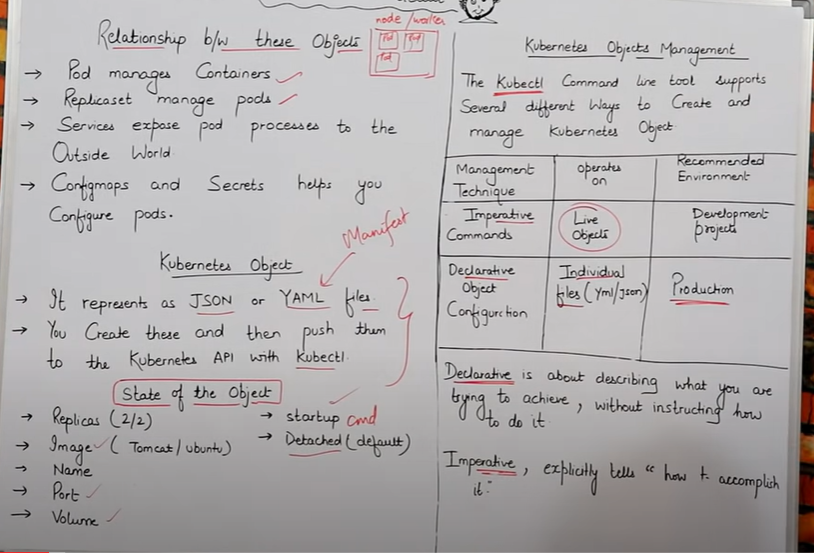 Relationship b/w these Objects
node / worker
Pod Pod
Pod
→ Pod manages Containers
→ Replicaset manage pods
→ Services expose pod processes to the
Outside World
→ Configmaps and Secrets helps you
Configure pods.
Manifest
Kubernetes Object
→ It represents as JSON or YAML files
→ You Create these and then push them
to the Kubernetes API with Kubectl
State of the Object
→ Replicas (2/2)
→ Image (Tomcat/ubuntu)
→ Name
→ Port
→ Volume
→ startup cmd
→ Detached (default)
Kubernetes Objects Management
The Kubectl Command line tool supports
Several different Ways to Create and
manage Kubernetes Object.
Management
Technique
operates
on
Recommended
Environment
Imperative
Commands
Live
Objects
Development
projects
Declarative
Object
Configurction
Individual
files (Yml/Json)
Production
Declarative is about describing what you are
trying to achieve, without instructing how
to do it
Imperative, explicitly tells "how to accomplish
it"